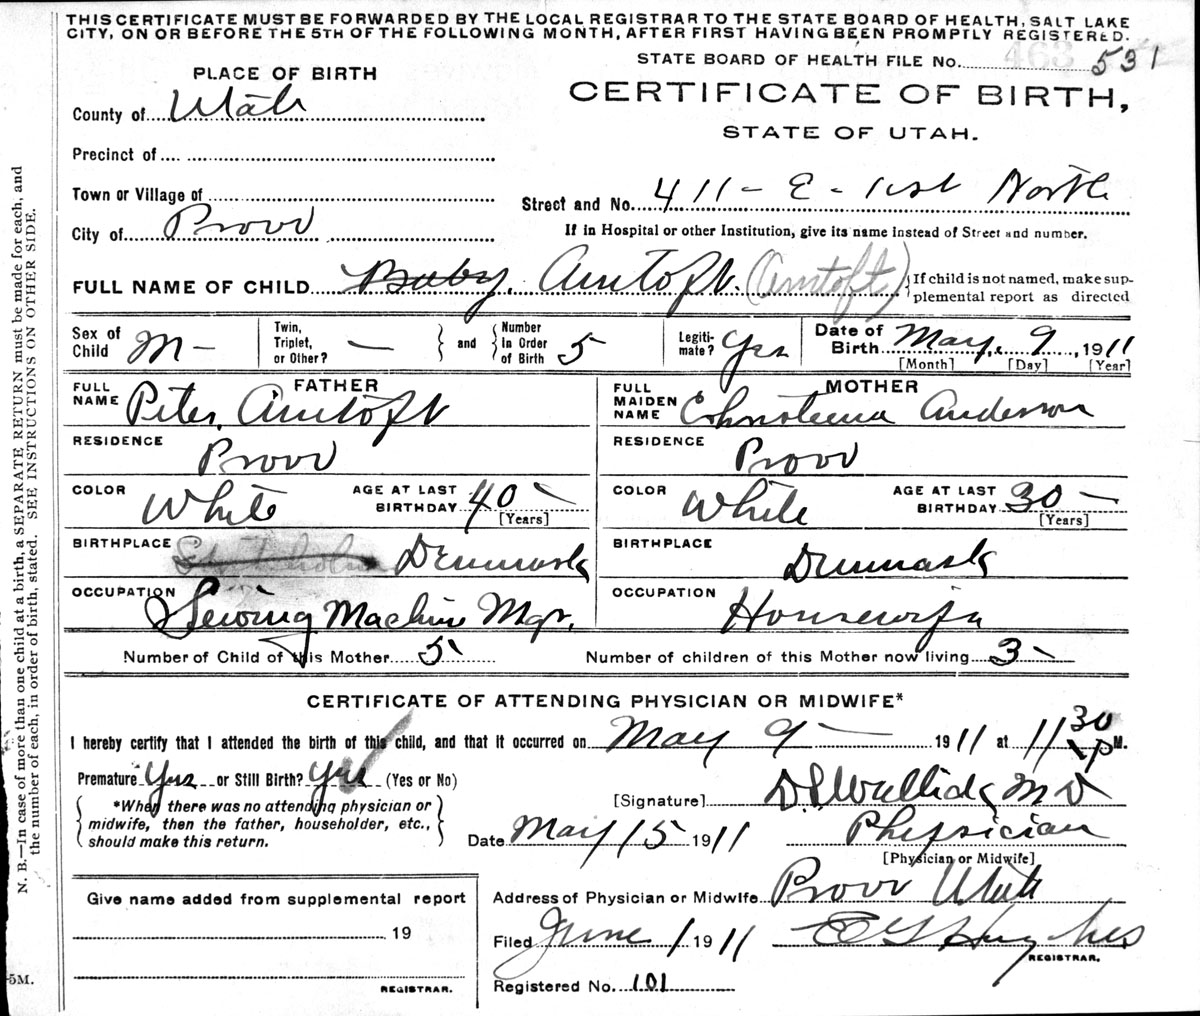 THIS CERTIFICATE MUST BE FORWARDED BY THE LOCAL REGISTRAR TO THE STATE BOARD OF HEALTH, SALT LAKE
CITY, ON OR BEFORE THE 5TH OF THE FOLLOWING MONTH, AFTER FIRST HAVING BEEN PROMPTLY REGISTERED.
STATE BOARD OF HEALTH FILE No. 463 531
PLACE OF BIRTH
CERTIFICATE OF BIRTH,
STATE OF UTAH.
County of Utah
Precinct of
Town or Village of
Street and No. 411 - E - 1st North
City of Provo
If in Hospital or other Institution, give its name instead of Street and number.
FULL NAME OF CHILD Baby. Amtoft. (Amtoft) {If child is not named, make sup-
plemental report as directed
Sex of Child M -
Twin, Triplet, or Other? — } and { Number in Order of Birth 5
Legiti-mate? Yes
Date of Birth May. 9, 1911
[Month] [Day] [Year]
FATHER
FULL NAME Peter. Amtoft
MOTHER
FULL MAIDEN NAME Anderson
RESIDENCE Provo
RESIDENCE Provo
COLOR White AGE AT LAST BIRTHDAY 40 -
[Years]
COLOR White AGE AT LAST BIRTHDAY 30 —
[Years]
BIRTHPLACE Denmark
BIRTHPLACE Denmark
OCCUPATION Sewing Machine Mgr.
OCCUPATION Housewife
Number of Child of this Mother 5
Number of children of this Mother now living 3 -
CERTIFICATE OF ATTENDING PHYSICIAN OR MIDWIFE*
I hereby certify that I attended the birth of this child, and that it occurred on May 9 — 1911 at 11 30 P M.
Premature Yes or Still Birth? Yes (Yes or No)
*When there was no attending physician or
midwife, then the father, householder, etc.,
should make this return.
[Signature] M D
Date May 15 1911
Physician
[Physician or Midwife]
Give name added from supplemental report
19
REGISTRAR.
Address of Physician or Midwife Provo Utah
Filed June 1 1911 Hughes
REGISTRAR.
Registered No. 101
N. B.—In case of more than one child at a birth, a SEPARATE RETURN must be made for each, and
the number of each, in order of birth, stated. SEE INSTRUCTIONS ON OTHER SIDE.
-5M.